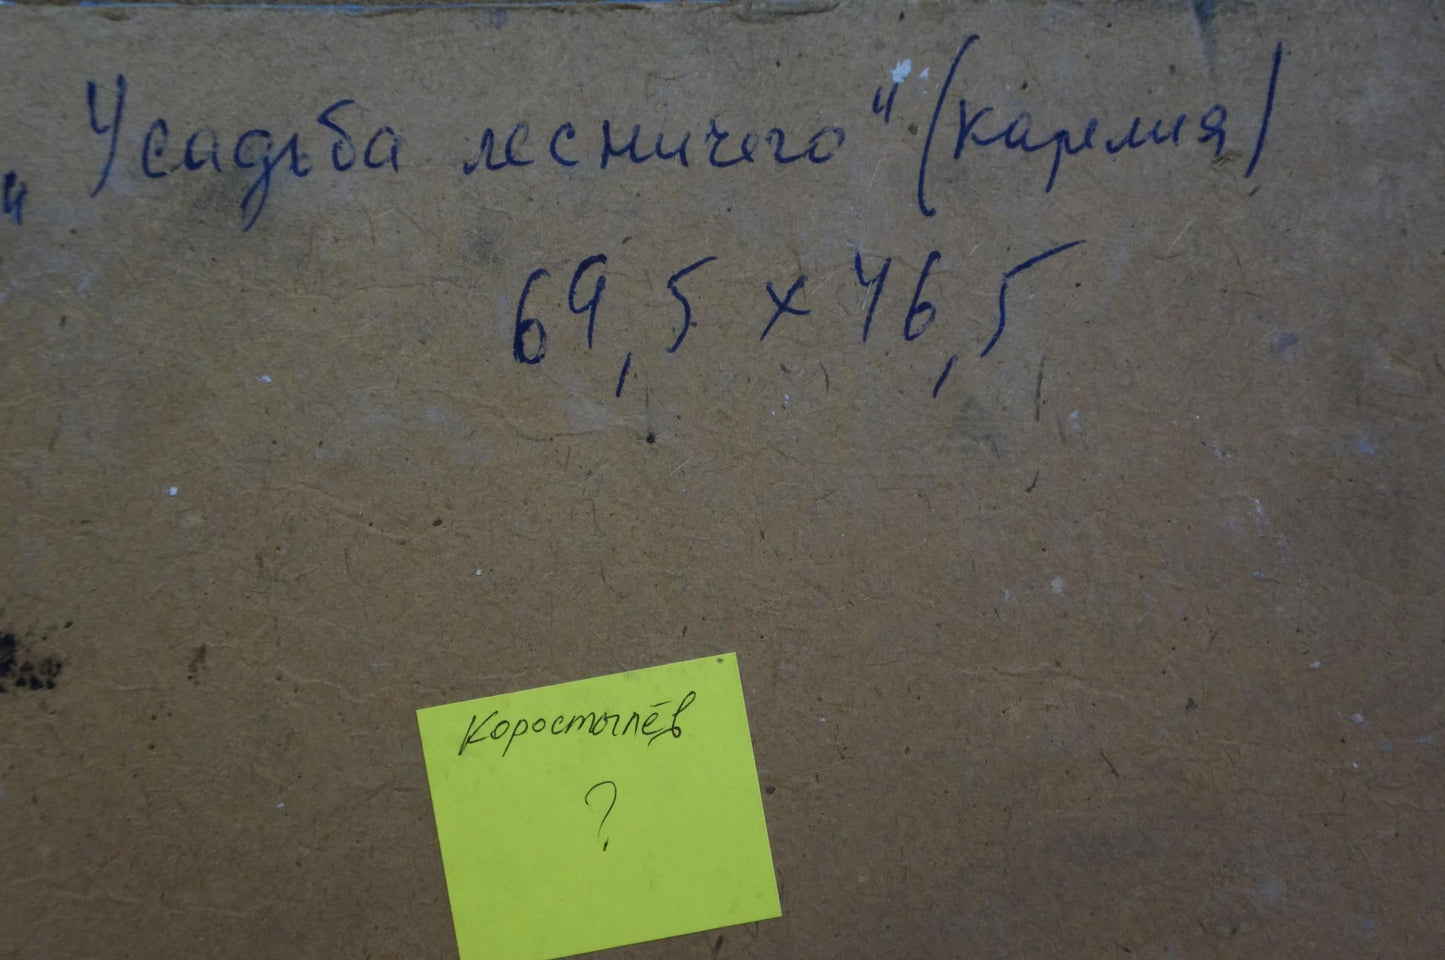 „Усадьба лесничего" (Карелия)
69,5 х 46,5
Коростылёв
?